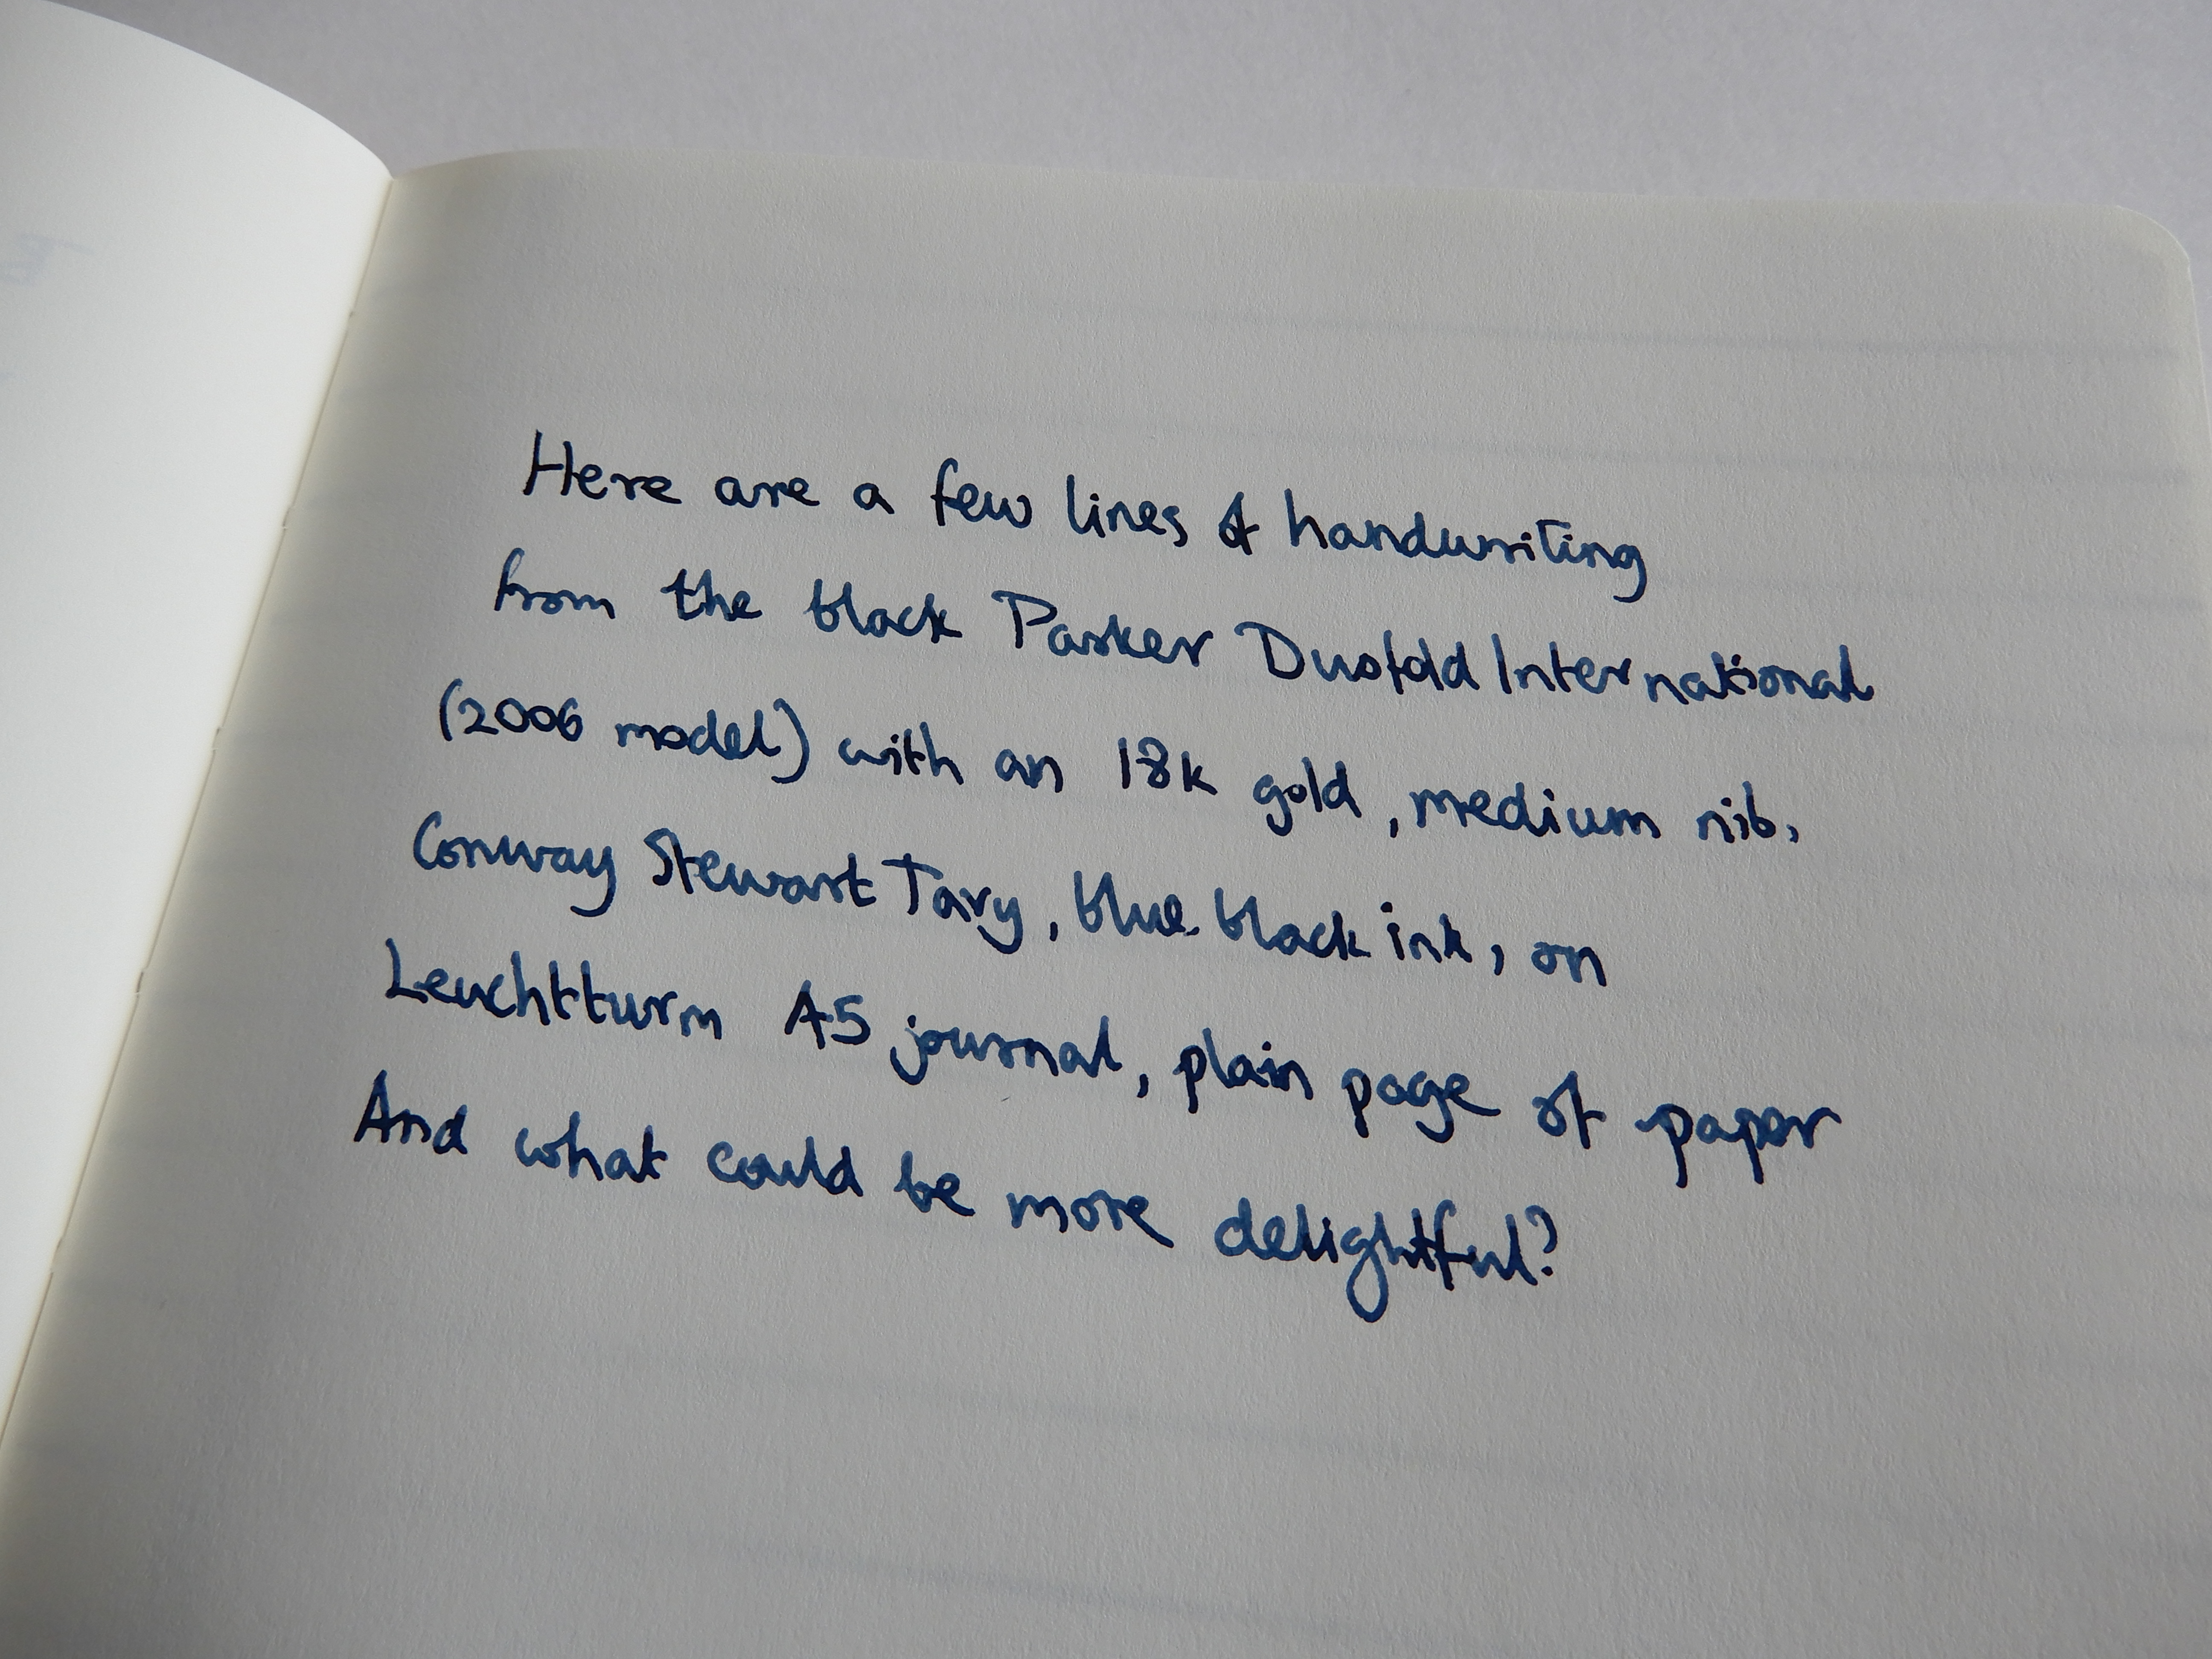 Here are a few lines of handwriting
from the black Parker Duofold International
(2006 model) with an 18k gold, medium nib,
Conway Stewart Tavy, blue-black ink, on
Leuchtturm A5 journal, plain page of paper
And what could be more delightful?